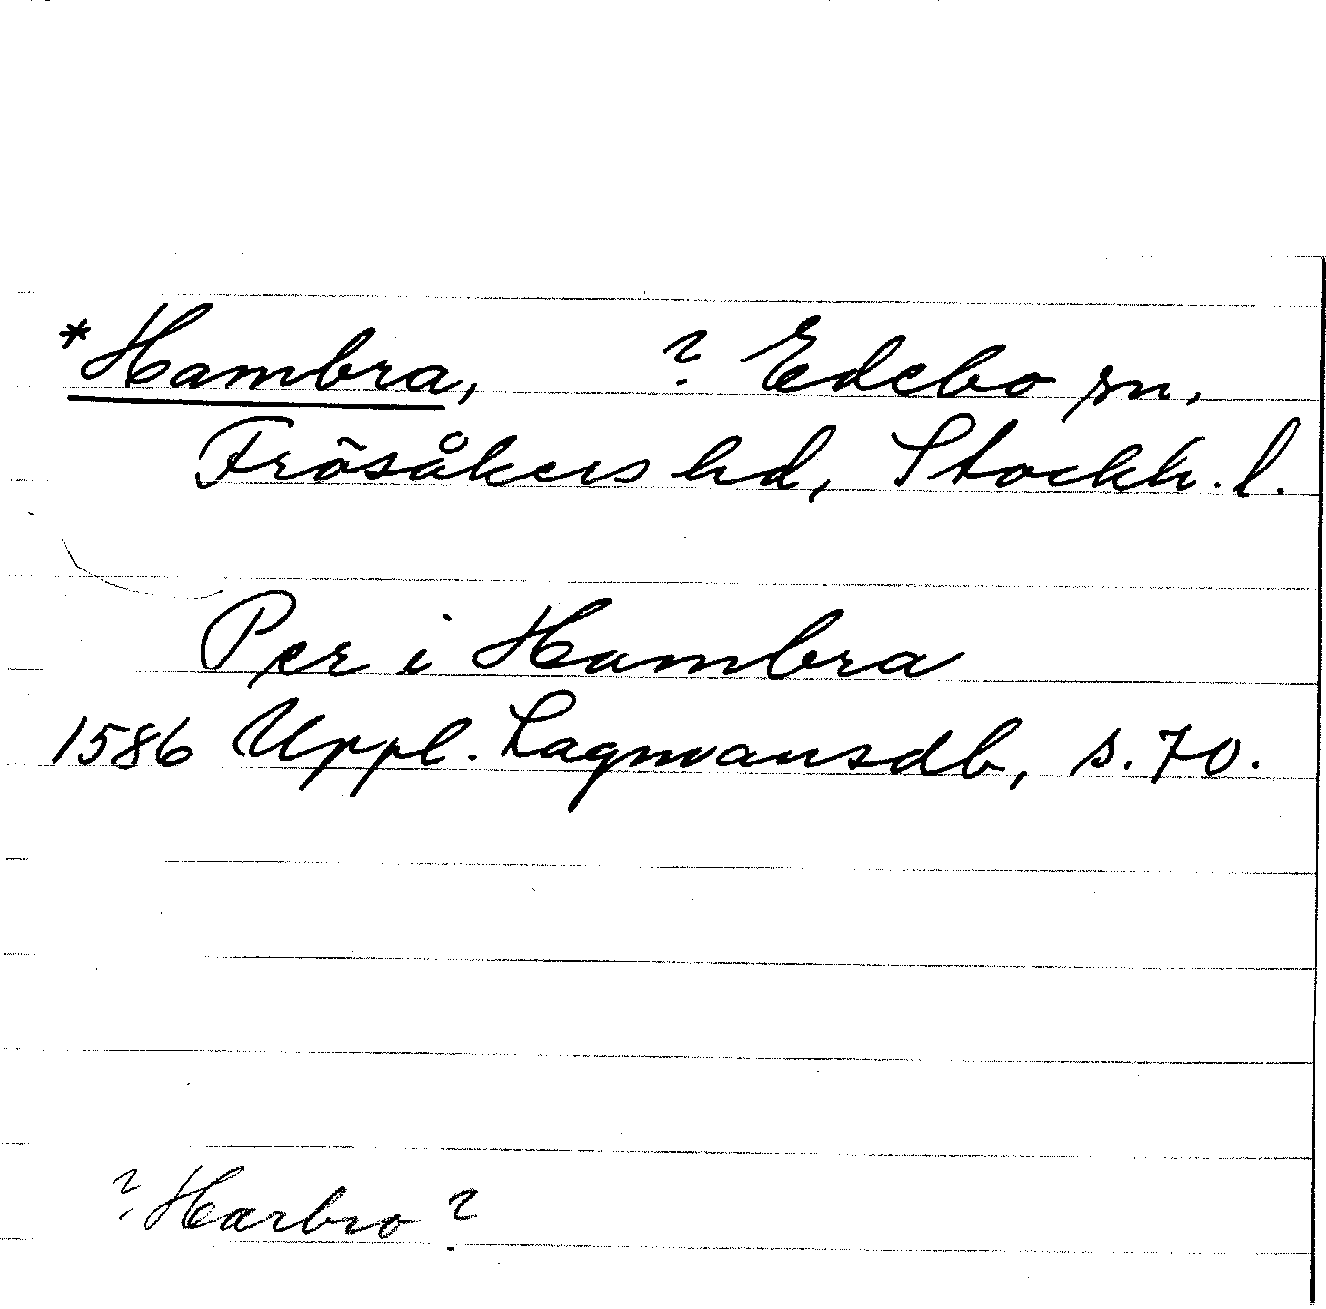 *Hambra, ? Edebo sn,
Frösåkers hd, Stockh. l.
Per i Hambra
1586 Uppl. Lagmansdb, s. 70.
? Harbro ?